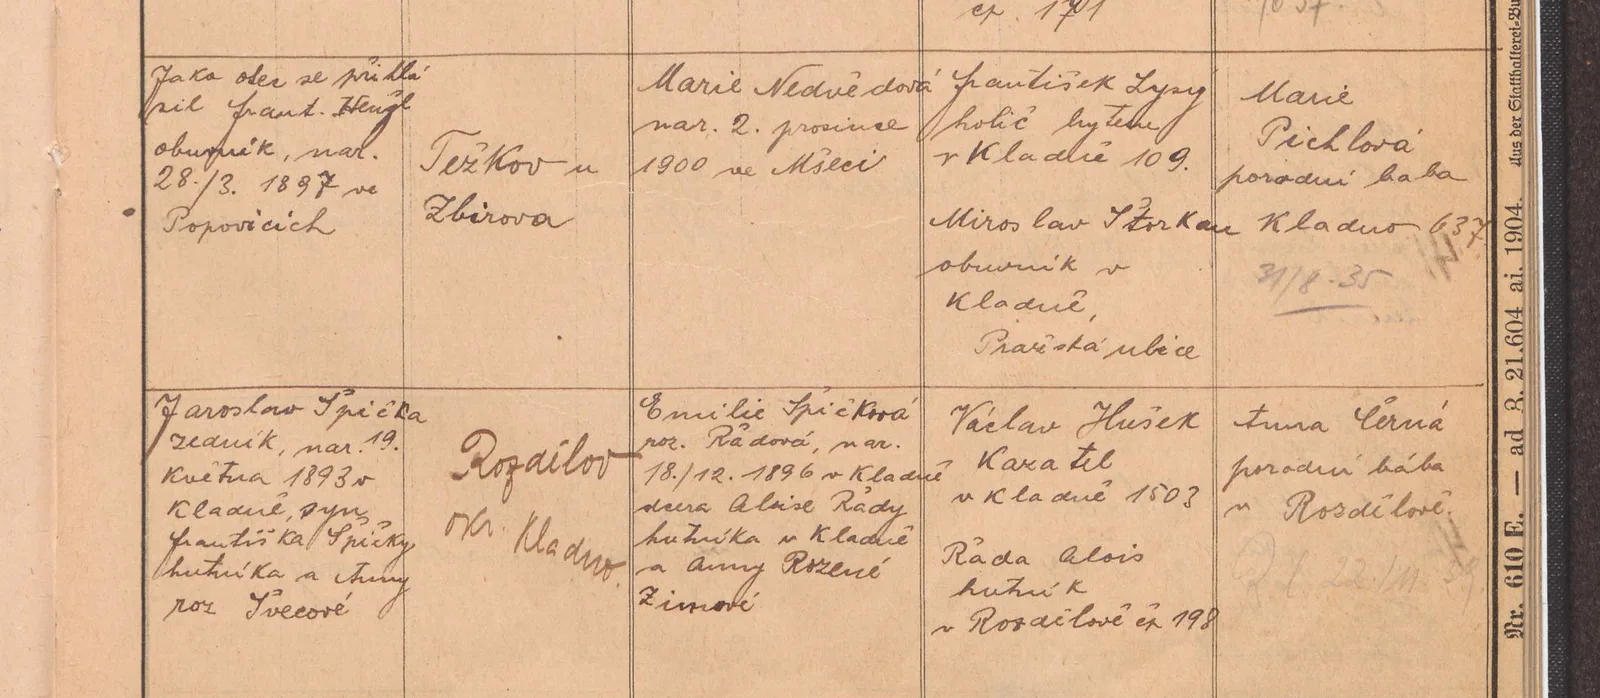 čp. 1701
Jako otec se přihlá
sil frant. Hengl
obuvník, nar.
28./3. 1897 ve
Popovicích
Těžkov u
Zbirova
Marie Nedvědová
nar. 2. prosince
1900 ve Mšeci
František Lysý
holič bytem
v Kladně 109.
Miroslav Štorkan
obuvník v
Kladně,
Pražská ulice
Marie
Pichlová
porodní baba
Kladno 637
31/8. 35
Jaroslav Špička
zedník, nar. 19.
května 1893 v
Kladně, syn
františka Špičky
hutníka a Anny
roz Švecové
Rozdílov
okr. Kladno.
Emilie Špičková
roz. Rádová, nar.
18./12. 1896 v Kladně
dcera Aloise Rády
hutníka v Kladně
a Anny Rozené
Zimové
Václav Hušek
Kazatel
v Kladně 1503
Ráda Alois
hutník
v Rozdělově čp 198
Anna Černá
porodní bába
v Rozdělově.
Aus der Statthalterei-Bu
Nr. 610 E. — ad Z. 21.604 ai. 1904.